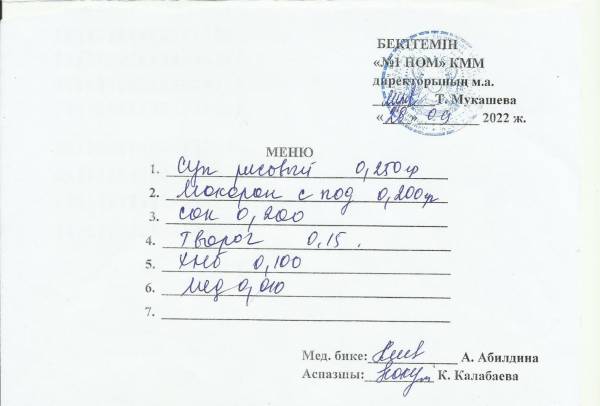 БЕКІТЕМІН
«№1 НОМ» КММ
директорының м.а.
Т. Мукашева
«28» 09 2022 ж.
МЕНЮ
1. Суп рисовый 0,250гр
2. Макарон с под 0,200гр
3. сок 0,200
4. Творог 0,15.
5. Хлеб 0,100
6. мед 0,010
7.
Мед. бике: А. Абилдина
Аспазшы: К. Калабаева